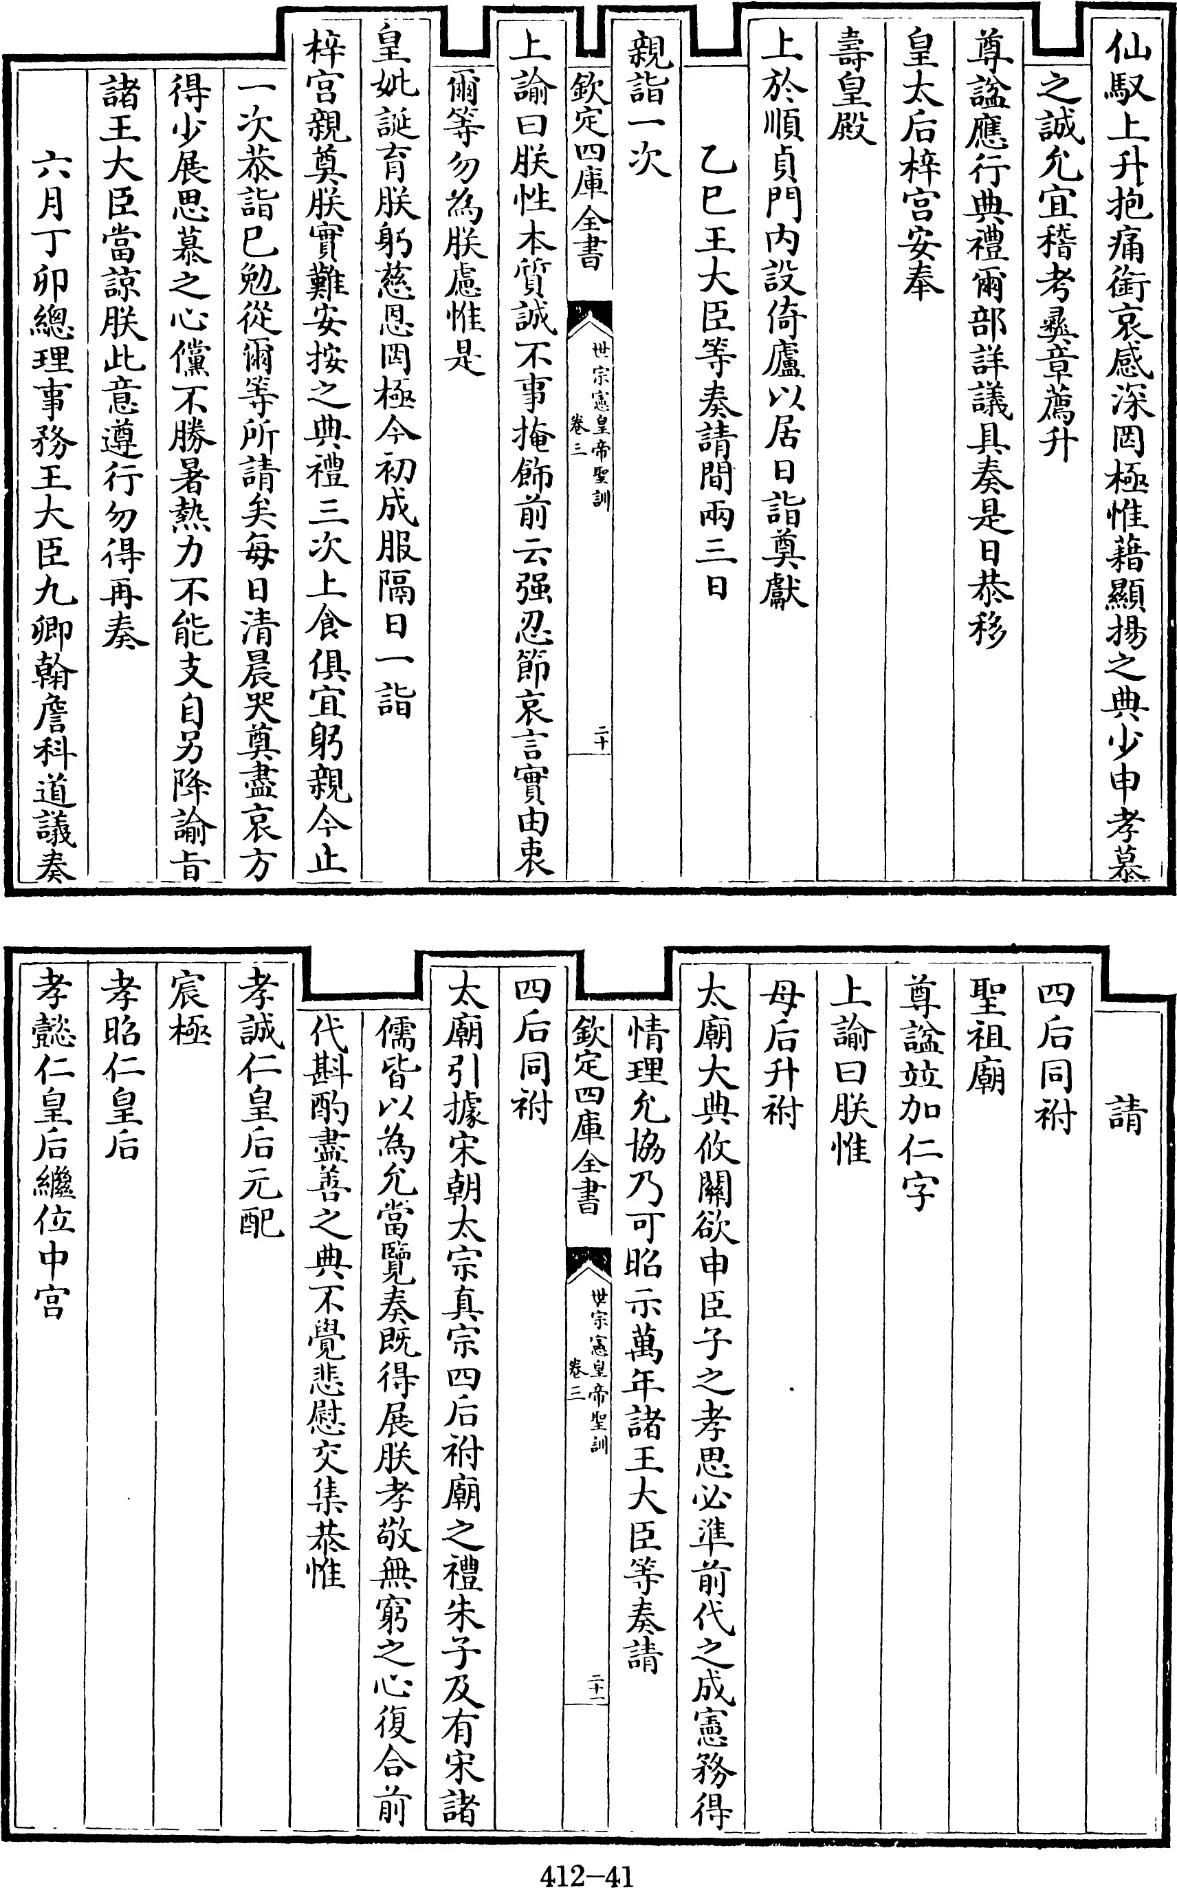 仙馭上升抱痛銜哀感深罔極惟藉顯揚之典少申孝慕
之誠允宜稽考彞章薦升
尊謚應行典禮爾部詳議具奏是日恭移
皇太后梓宫安奉
壽皇殿
上於順貞門内設倚廬以居日詣奠獻
乙巳王大臣等奏請間兩三日
親詣一次
欽定四庫全書
世宗憲皇帝聖訓
卷三
二十
上諭曰朕性本質誠不事掩飾前云强忍節哀言實由衷
爾等勿為朕慮惟是
皇妣誕育朕躬慈恩罔極今初成服隔日一詣
梓宫親奠朕實難安按之典禮三次上食俱宜躬親今止
一次恭詣已勉從爾等所請矣每日清晨哭奠盡哀方
得少展思慕之心儻不勝暑熱力不能支自另降諭旨
諸王大臣當諒朕此意遵行勿得再奏
六月丁卯總理事務王大臣九卿翰詹科道議奏
請
四后同祔
聖祖廟
尊謚竝加仁字
上諭曰朕惟
母后升祔
太廟大典攸關欲申臣子之孝思必準前代之成憲務得
情理允協乃可昭示萬年諸王大臣等奏請
欽定四庫全書
世宗憲皇帝聖訓
卷三
二十一
四后同祔
太廟引據宋朝太宗真宗四后祔廟之禮朱子及有宋諸
儒皆以為允當覽奏既得展朕孝敬無窮之心復合前
代斟酌盡善之典不覺悲慰交集恭惟
孝誠仁皇后元配
宸極
孝昭仁皇后
孝懿仁皇后繼位中宫
412-41